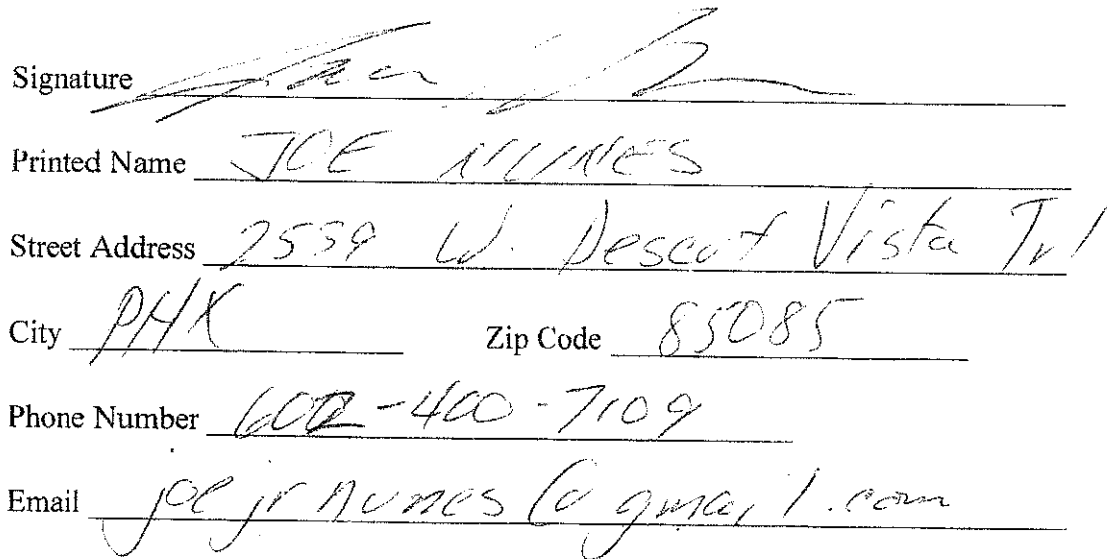 Signature
Printed Name JOE NUNES
Street Address 2539 W. Desert Vista Trl
City PHX Zip Code 85085
Phone Number 602-400-7109
Email joejrnunes@gmail.com